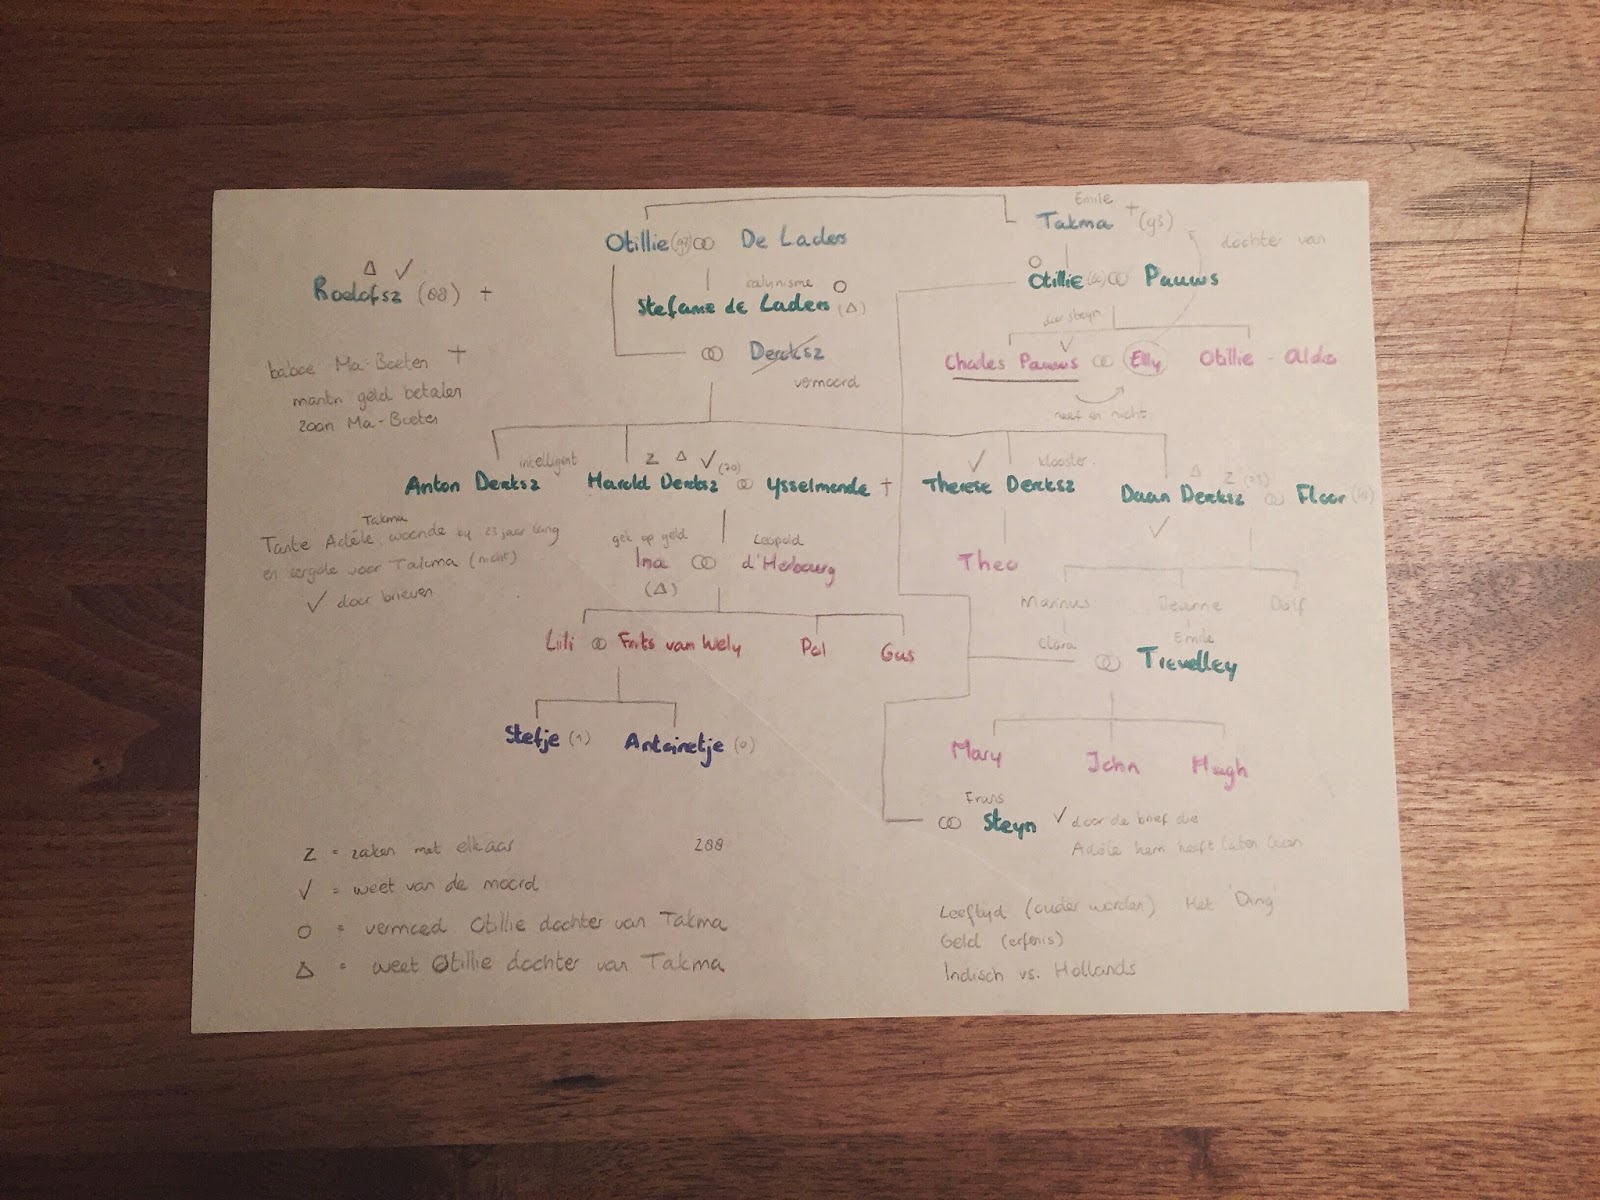 Emile
Otillie
De Laders
Takma † (93)
dochter van
Δ ✓
Roelofsz (88) †
calvinisme O
Stefanie de Laders (Δ)
O
Otillie
Pauws
Dercksz
vermoord
door Steyn
✓
Charles Pauws
Elly
Otillie - Aldo
neef en nicht
baboe Ma-Boeten †
geld betalen
zoon Ma-Boeten
intelligent
Z Δ ✓ (70)
✓
klooster
Δ Z
Anton Derksz
Harold Derksz
Ysselmonde †
Therese Derksz
Daan Derksz
Floor
✓
Takma
Tante Adèle, woonde bij 23 jaar lang
en zorgde voor Takma (nicht)
✓ door brieven
gek op geld
Leopold
Ina
d'Herbourg
(Δ)
Theo
Marinus
Jeanne
Dolf
Lili
Frits van Wely
Pol
Gus
Clara
Emile
Trevelley
Stefje (1)
Antoinetje (0)
Mary
John
Hugh
Frans
Steyn ✓ door de brief die
Adèle hem heeft laten lezen
Z = zaken met elkaar
288
✓ = weet van de moord
O = vermoed Otillie dochter van Takma
Δ = weet Otillie dochter van Takma
Leeftijd (ouder worden) Het 'Ding'
Geld (erfenis)
Indisch vs. Hollands